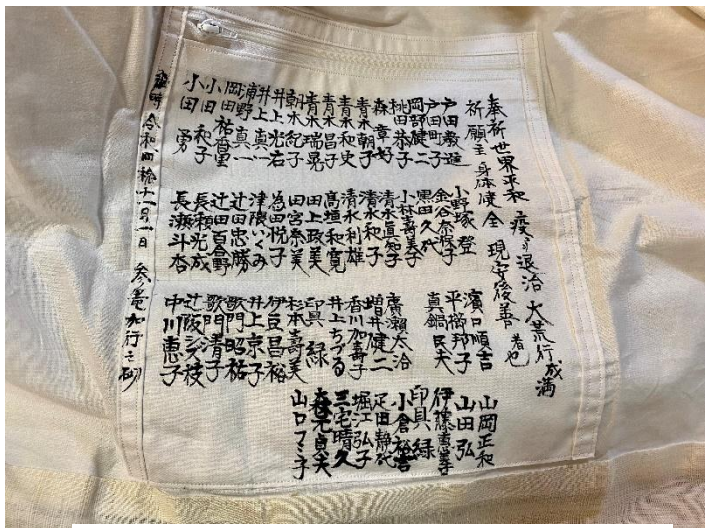 奉祈 世界平和 疫病退治 大荒行成満
祈願主 身体健全 現安後善 者也
戸田
戸田町子
岡野健二
桃田恭子
森章好
青木朝子
青木和史
青木昌子
青木瑞晃
朝木紀子
井上光右
井上真一
浦野真一
岡田祐香里
小田和子
小田勇
小野塚登
金谷奈穂子
黒田久代
小林寿美子
清水直知子
清水和子
清水利雄
高垣和寛
田上政美
田宮奈美
為田悦子
津隈いくみ
辻田忠勝
辻田百合野
長瀬光成
長瀬斗杏
濱口順吉
平櫛邦子
真鍋民夫
廣瀬太治
増井健二
香川加寿子
井上ちづる
印具緑
杉本寿美
伊豆昌裕
井上京子
歌門昭祐
歌門清子
辻阪シズ枝
中川恵子
山岡正和
山田弘
伊藤恵美子
印具緑
小倉裕善
疋田静代
堀江弘子
三宅晴久
森光貞夫
山口フミ子
維時 令和四稔十一月一日 参竟加行之砌